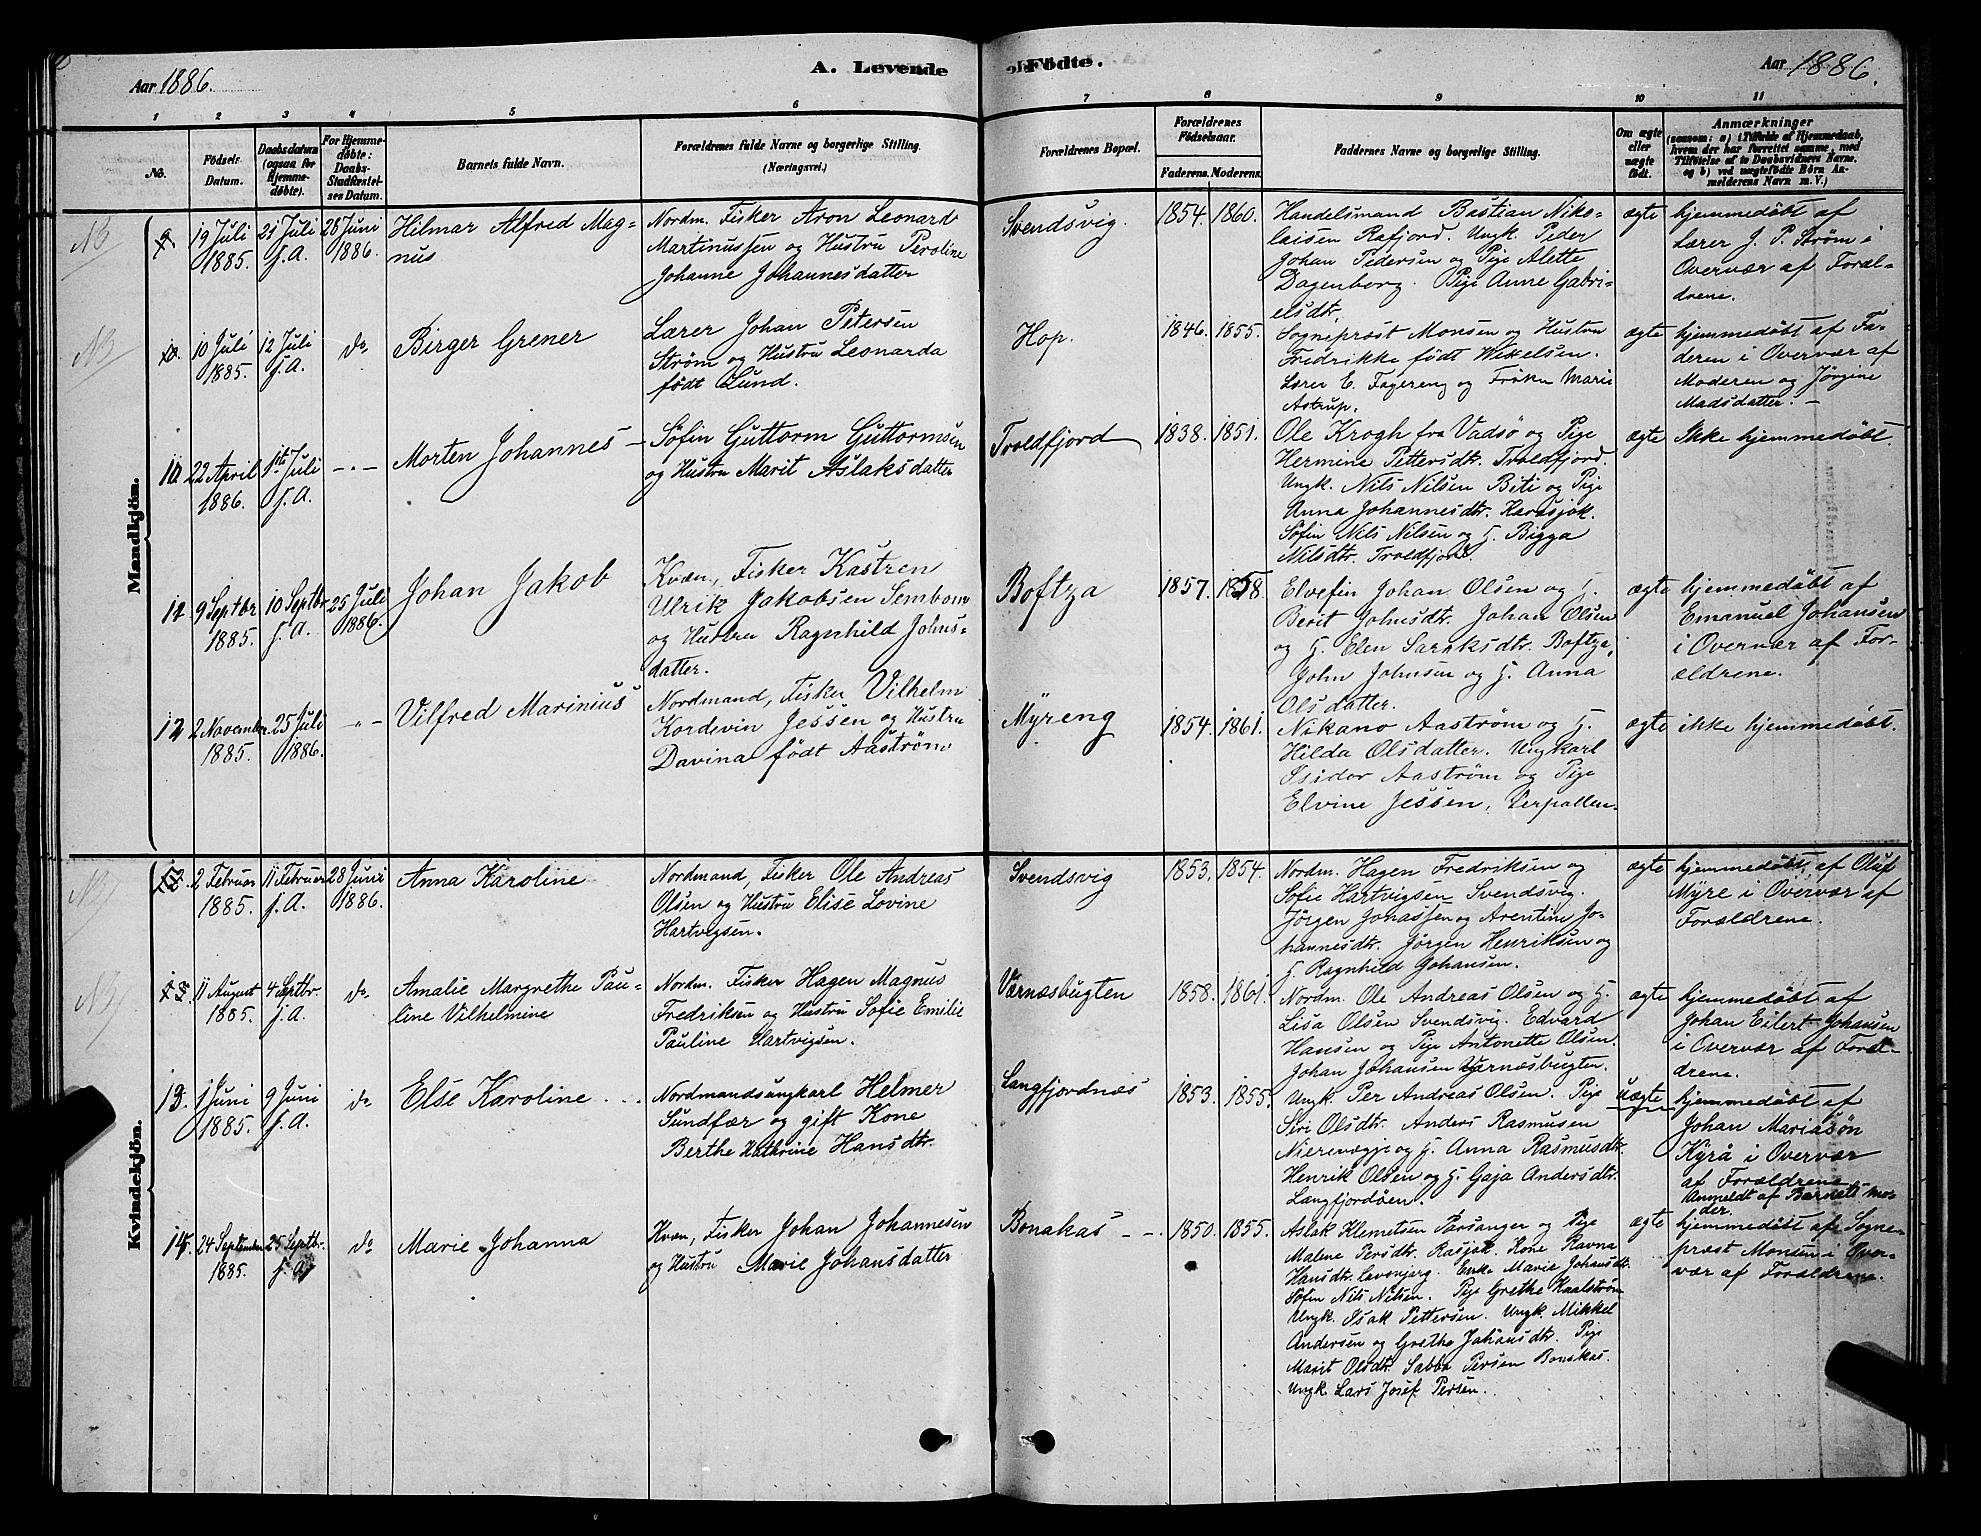 Aar 1886.
A. Levende
Födte.
Aar 1886.
1 2 3 4 5 6 7 8 9 10 11
No.
Födsels Datum.
Daabsdatum (ogsaa for Hjemmedöbte).
For Hjemmedöbte: Daabs-Stadfæstelses Datum.
Barnets fulde Navn.
Forældrenes fulde Navne og borgerlige Stilling. (Næringsvei.)
Forældrenes Bopæl.
Forældrenes Födselsaar.
Faderens. Moderens.
Faddernes Navne og borgerlige Stilling.
Om ægte eller uægte födt.
Anmærkninger
(saasom: a) i Tilfælde af Hjemmedaab, hvem der har forrettet samme, med Tilföielse af to Daabsvidners Navne, og b) ved uægtefödte Börn Anmelderens Navn m. V.)
Mandkjön.
NB 9 19 Juli 1885. 21 Juli s. A. 28 Juni 1886.
Hilmar Alfred Mag-
nus
Nordm. Fisker Aron Leonard
Martinussen og Hustru Peroline
Johanne Johannesdatter
Svendsvig. 1854. 1860.
Handelsmand Bastian Niko-
laisen Rafjord. Ungk. Peder
Johan Pedersen og Pige Alette
Dagenborg. Pige Anne Gabri-
elsdtr.
ægte
hjemmedøbt af
Lærer J. P. Strøm i
Overvær af Foræl-
drene.
NB 10. 10 Juli 1885. 12 Juli s. A. do
Birger Grener
Lærer Johan Petersen
Strøm og Hustru Leonarda
født Lund.
Hop. 1846. 1855.
Sognepræst Monsen og Hustru
Fredrikke født Mikelsen.
Lærer E. Fagereng og Frøken Marie
Astrup.
ægte
hjemmedøbt af Fa-
deren i Overvær af
Moderen og Jørgine
Madsdatter. —
10. 22 April 1886. 1ste Juli s. A. -"-
Morten Johannes
Søfin Guttorm Guttormsen
og Hustru Marit Aslaksdatter
Troldfjord 1838. 1851.
Ole Krogh fra Vadsø og Pige
Hermine Pettersdtr. Troldfjord.
Ungk. Nils Nilsen Biti og Pige
Anna Johannesdtr. Karasjok.
Søfin Nils Nilsen og H. Bigga
Nilsdtr. Troldfjord
ægte
Ikke hjemmedøbt.
11. 9 Septbr 1885. 10 Septbr. s. A. 25 Juli 1886.
Johan Jakob
Kvæn, Fisker Kastren
Ulrik Jakobsen Sembom
og Hustru Ragnhild Johns-
datter.
Boftza 1857. 1858.
Elvefin Johan Olsen og H.
Berit Johnsdtr. Johan Olsen
og H. Elen Saraksdtr. Boftza,
John Johnsen og H. Anna
Olsdatter.
ægte
hjemmedøbt af
Emanuel Johansen
i Overvær af For-
ældrene.
12 2 November 1885. 25 Juli 1886. -"-
Vilfred Marinius
Nordmand, Fisker Vilhelm
Kordevin Jessen og Hustru
Davina født Aaström
Myreng 1854. 1861.
Nikano Aaström og H.
Hilda Olsdatter. Ungkarl
Isidor Aaström og Pige
Elvine Jessen, Verpollen.
ægte
ikke hjemmedøbt.
Kvindekjön.
NB 12. 2 Februar 1885. 11 Februar s. A. 28 Juni 1886.
Anna Karoline
Nordmand, Fisker Ole Andreas
Olsen og Hustru Elise Lovine
Hartvigsen.
Svendsvig 1853. 1854.
Nordm. Hagen Fredriksen og
Sofie Hartvigsen Svendsvig.
Jørgen Jonassen og Arentine Jo-
hannesdtr. Jørgen Henriksen og
H. Ragnhild Johansen.
ægte
hjemmedøbt af Oluf
Myre i Overvær af
Forældrene.
NB 13 11 August 1885. 4 Septbr. s. A. do
Amalie Margrethe Pau-
line Vilhelmine
Nordm. Fisker Hagen Magnus
Fredriksen og Hustru Sofie Emilie
Pauline Hartvigsen.
Værnæsbugten 1858. 1861.
Nordm. Ole Andreas Olsen og H.
Lisa Olsen Svendsvig. Edvard
Hansen og Pige Antonette Olsen.
Johan Johansen Værnæsbugten.
ægte
hjemmedøbt af
Johan Eilert Johansen
i Overvær af Foræl-
drene.
13. 1 Juni 1885. 9 Juni s. A. do
Else Karoline
Nordmandsungkarl Helmer
Sundfær og gift Kone
Berthe Kathrine Hansdtr.
Langfjordnæs 1853. 1855.
Ungk. Per Andreas Olsen. Pige
Siri Olsdtr. Anders Rasmusen
og H. Anna Rasmusdtr.
Henrik Olsen og H. Gaja Andersdtr.
Langfjordøen.
uægte
hjemmedøbt af
Johan Mariasøn
Kyrå i Overvær
af Forældrene.
Anmeldt af Barnets Mo-
der.
14. 24 September 1885. 25 Septbr. s. A. do
Marie Johanna
Kvæn, Fisker Johan Johannesen
og Hustru Marie Johansdatter
Bonakas 1850. 1855.
Aslak Klemetsen Porsanger og Pige
Malene Persdtr. Rasjok. Kone Ravna
Hansdtr. Lavonjerg. Enke Marie Johansdtr.
Søfin Nils Nilsen. Pige Grethe Kaalstrøm
Ungk. Isak Pettersen. Ungk. Mikkel
Andersen og Grethe Johansdtr. Pige
Marit Olsdtr. Sabba Persen Bonakas.
Ungk. Lars Josef Persen.
ægte
hjemmedøbt af Sogne-
præst Monsen i Over-
vær af Forældrene.